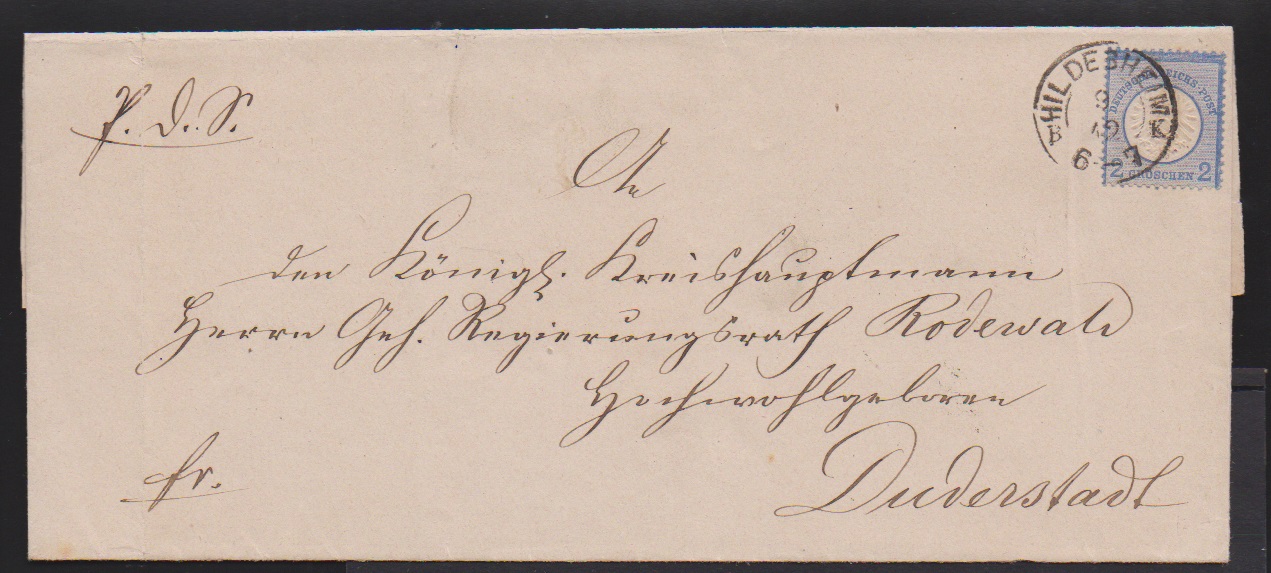 P. d. S.
HILDESHEIM
9
12
B K
6-7
DEUTSCHE REICHS-POST
2 GROSCHEN 2
An
den Königl. Kreishauptmann
Herrn Geh. Regierungsrath Rodewald
Hochwohlgeboren
fr.
Duderstadt